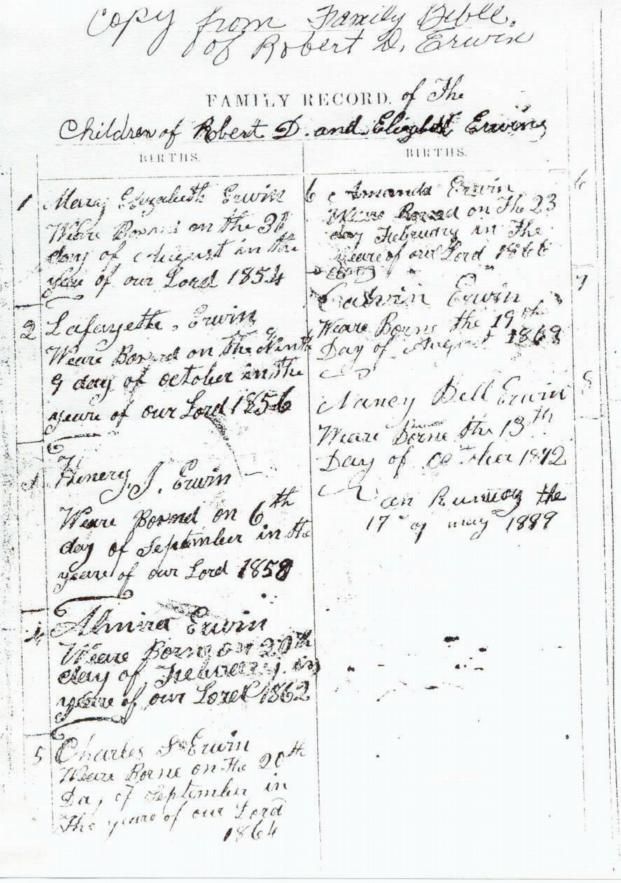 Copy from Family Bible.
of Robert D. Erwin
FAMILY RECORD. of The
Children of Robert D. and Elizabeth Erwing
BIRTHS.
1 Mary Elizabeth Erwin
Weare Bornd on the
day of August in the
year of our Lord 1854
2 Lafayette. Erwin
Weare Bornd on the Ninth
9 day of october in the
yeare of our Lord 1856
Henery J. Erwin
Weare Bornd on 6th
day of September in the
yeare of our Lord 1858
4 Almira Erwin
Weare Borne on 20th
day of February in
yeare of our Lord 1862
5 Charles S Erwin
Weare Borne on the 20th
Day of September in
The yeare of our Lord
1864
BIRTHS.
6 Amanda Erwin 6
Weare Bornd on The 23
day February in The
yeare of our Lord 1866
Erwin 7
Weare Borne the 19th
Day of August 1868
Nancy Bell Erwin 8
Weare Borne the 13th
Day of October 1872
the
17 of may 1889